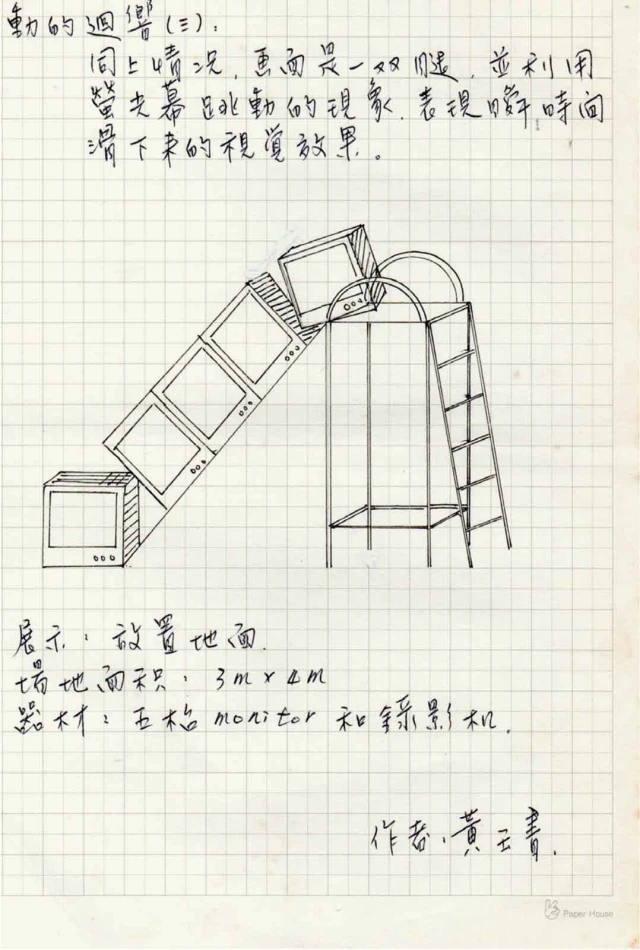 動的迴響(三):
同上情況,画面是一双腿,並利用
螢光幕跳動的現象,表現瞬時間
滑下來的視覺效果。
展示:放置地面.
場地面积:3m x 4m
器材:五枱monitor和錄影机.
作者:黃玉青.
Paper House